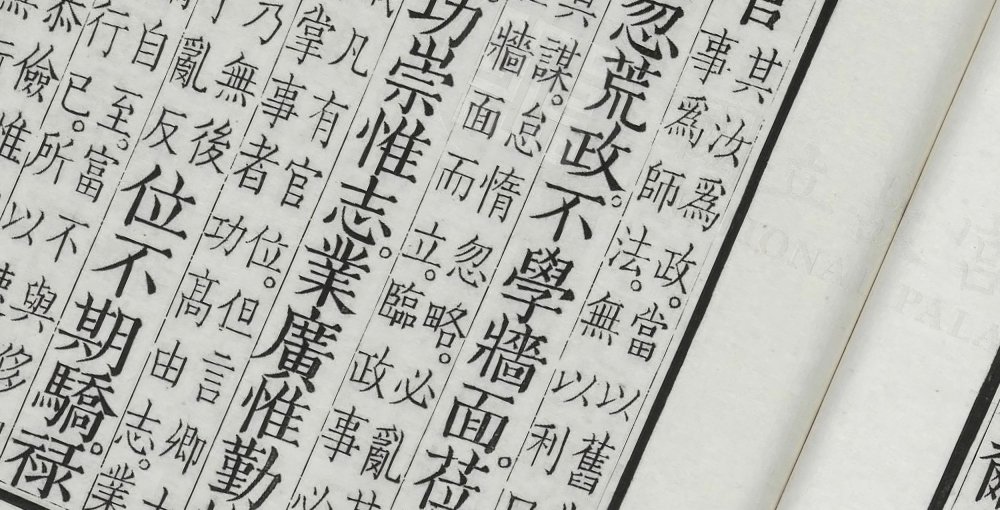 官其汝爲政。當以舊
事爲師法。無以利
忽荒政。不學牆面。莅
其謀。怠惰忽略。必亂其
牆面而立。臨政事必
功崇惟志。業廣惟勤
凡有官位。但言卿士
掌事者功高由志。業
乃無後
亂反
位不期驕。祿
自至。富不與侈
行已。所以
恭儉惟